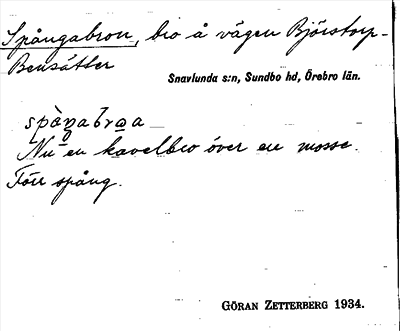 Spångabron, bro å vägen Björstorp-
Bensätter
Snavlunda s:n, Sundbo hd, Örebro län.
Nu en kavelbro över en mosse.
Förr spång.
GÖRAN ZETTERBERG 1934.